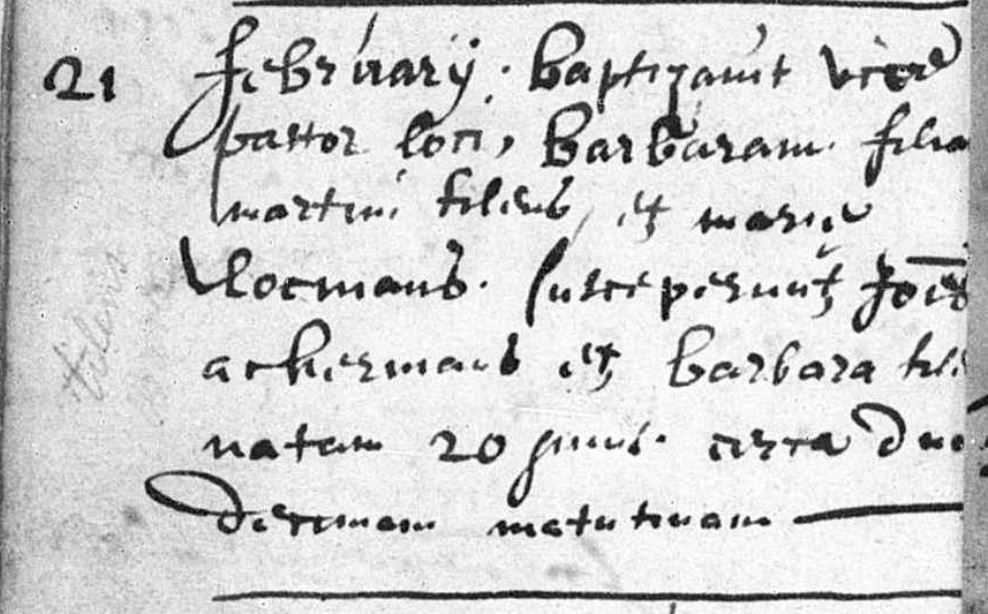 21 februarij. baptizavit vice
pastor loci, barbaram filia
martini tilens, et marie
vlocmans. susceperunt joës
ackermans et barbara
natam 20 hujus. circa duo
decimam matutinam
tilens